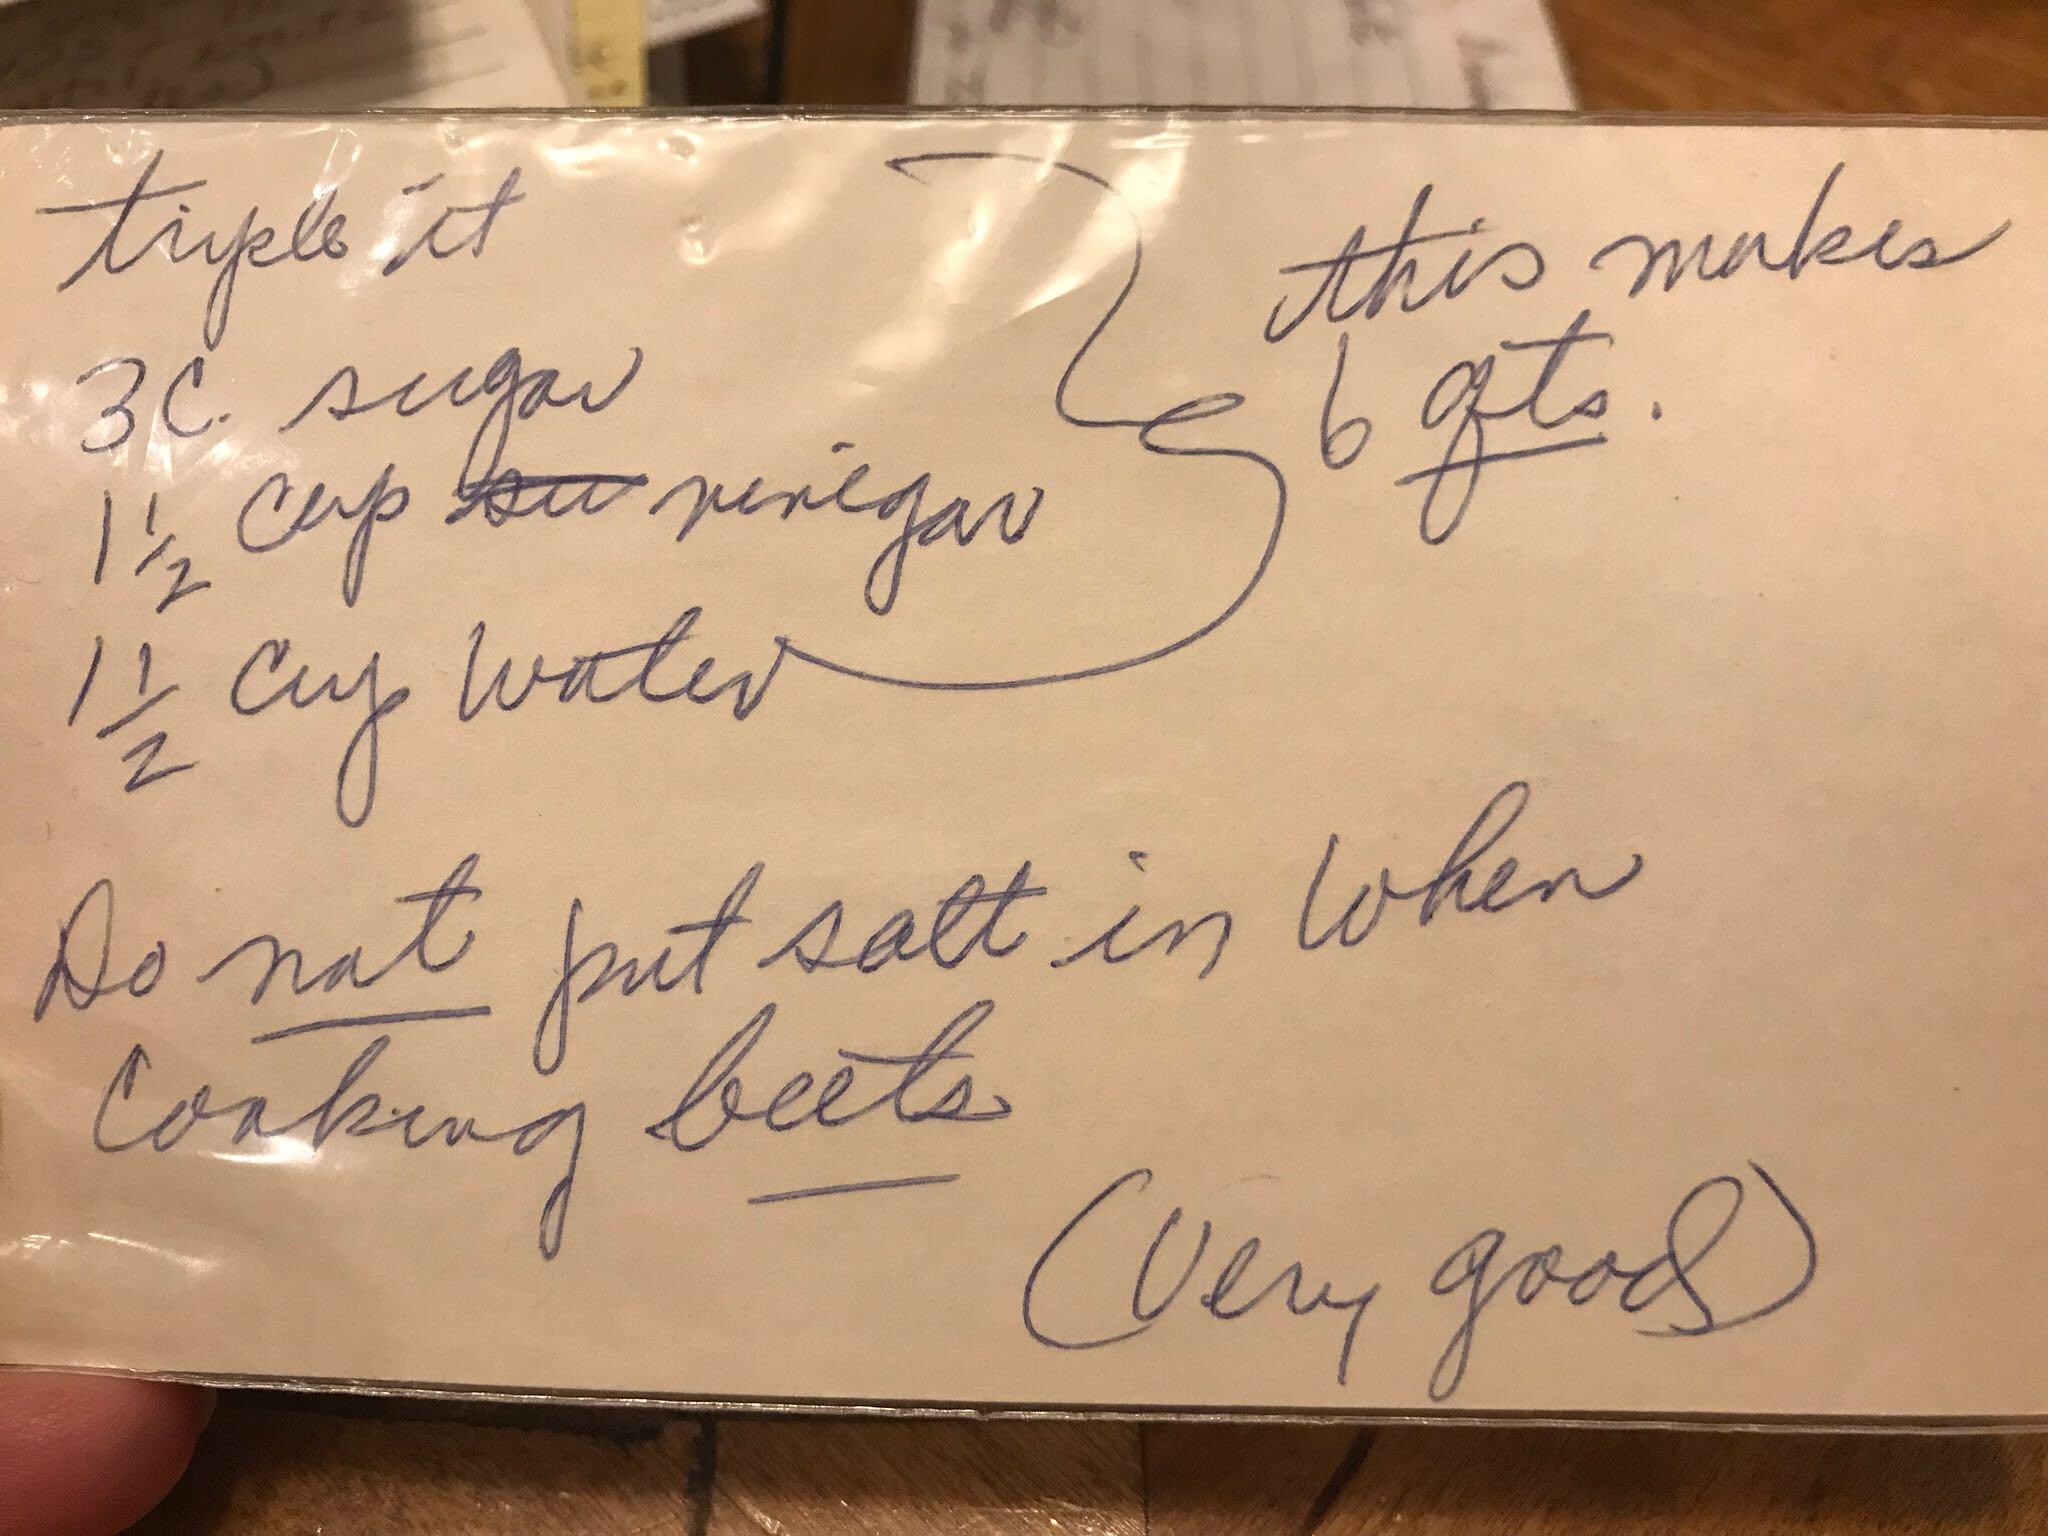 triple it
3 C. sugar
1 1/2 cup su vinegar
1 1/2 cup water
this makes
6 qts.
Do not put salt in when
cooking beets
(Very good)